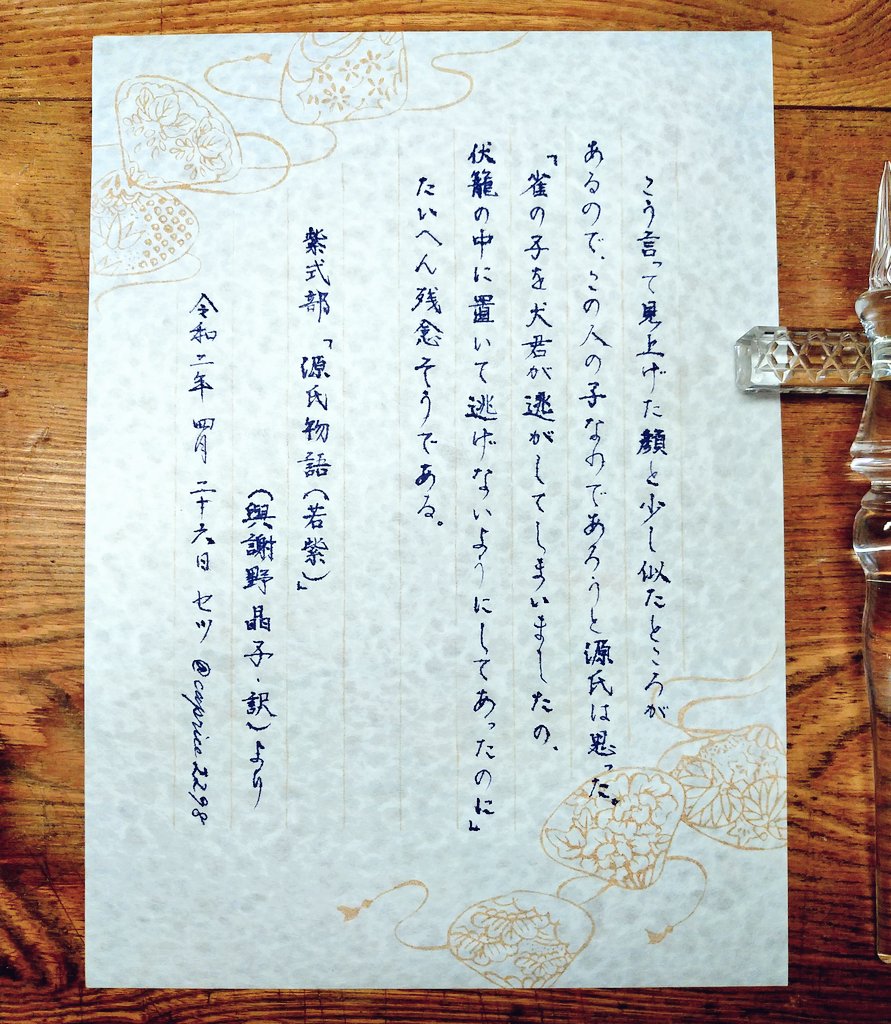 こう言って見上げた顔と少し似たところが
あるので、この人の子なのであろうと源氏は思った。
「雀の子を犬君が逃がしてしまいましたの、
伏籠の中に置いて逃げないようにしてあったのに」
たいへん残念そうである。
紫式部「源氏物語(若紫)」
(與謝野晶子・訳)より
令和二年 四月 二十六日 セツ @caprice2298